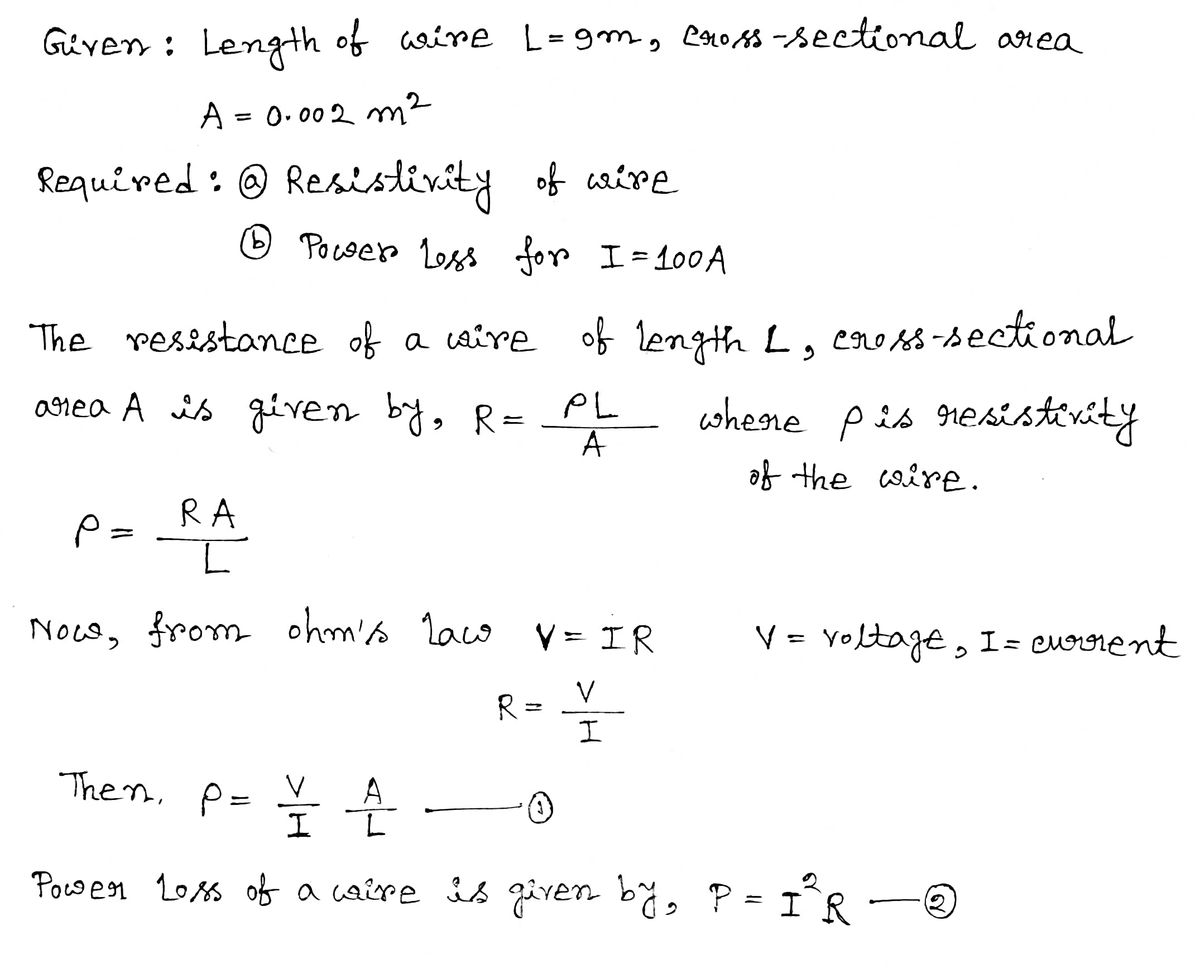 Given : Length of wire L = 9m, cross-sectional area
A = 0.002 m²
Required : ⓐ Resistivity of wire
ⓑ Power loss for I = 100A
The resistance of a wire of length L, cross-sectional
area A is given by, R = ρL/A where ρ is resistivity
of the wire.
ρ = RA/L
Now, from ohm's law V = IR V = voltage, I = current
R = V/I
Then, ρ = V/I A/L —— ①
Power loss of a wire is given by, P = I²R — ②